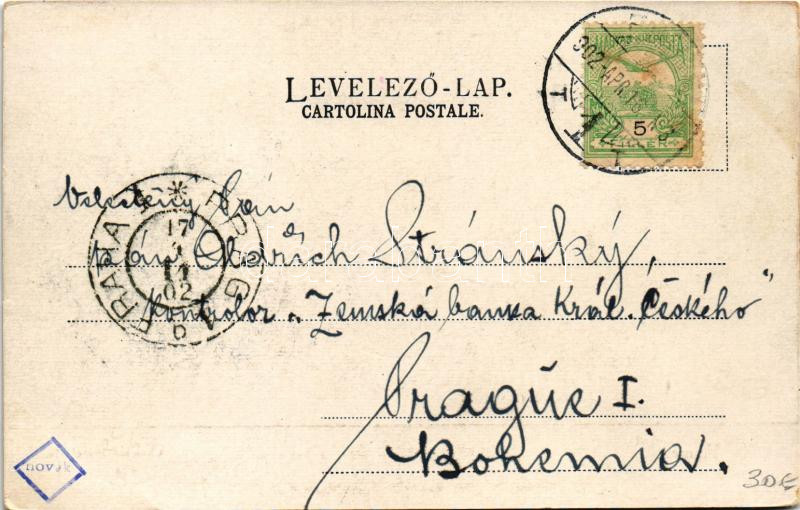 LEVELEZŐ-LAP.
CARTOLINA POSTALE.
MAGYAR KIR. POSTA
5
902 APR
Velectěný Pán
pán Oldřich Stránský,
Kontrolor „Zemská banka Král. Českého"
Prague I.
Bohemia.
PRAHA PRAG
17
02
novák
30€